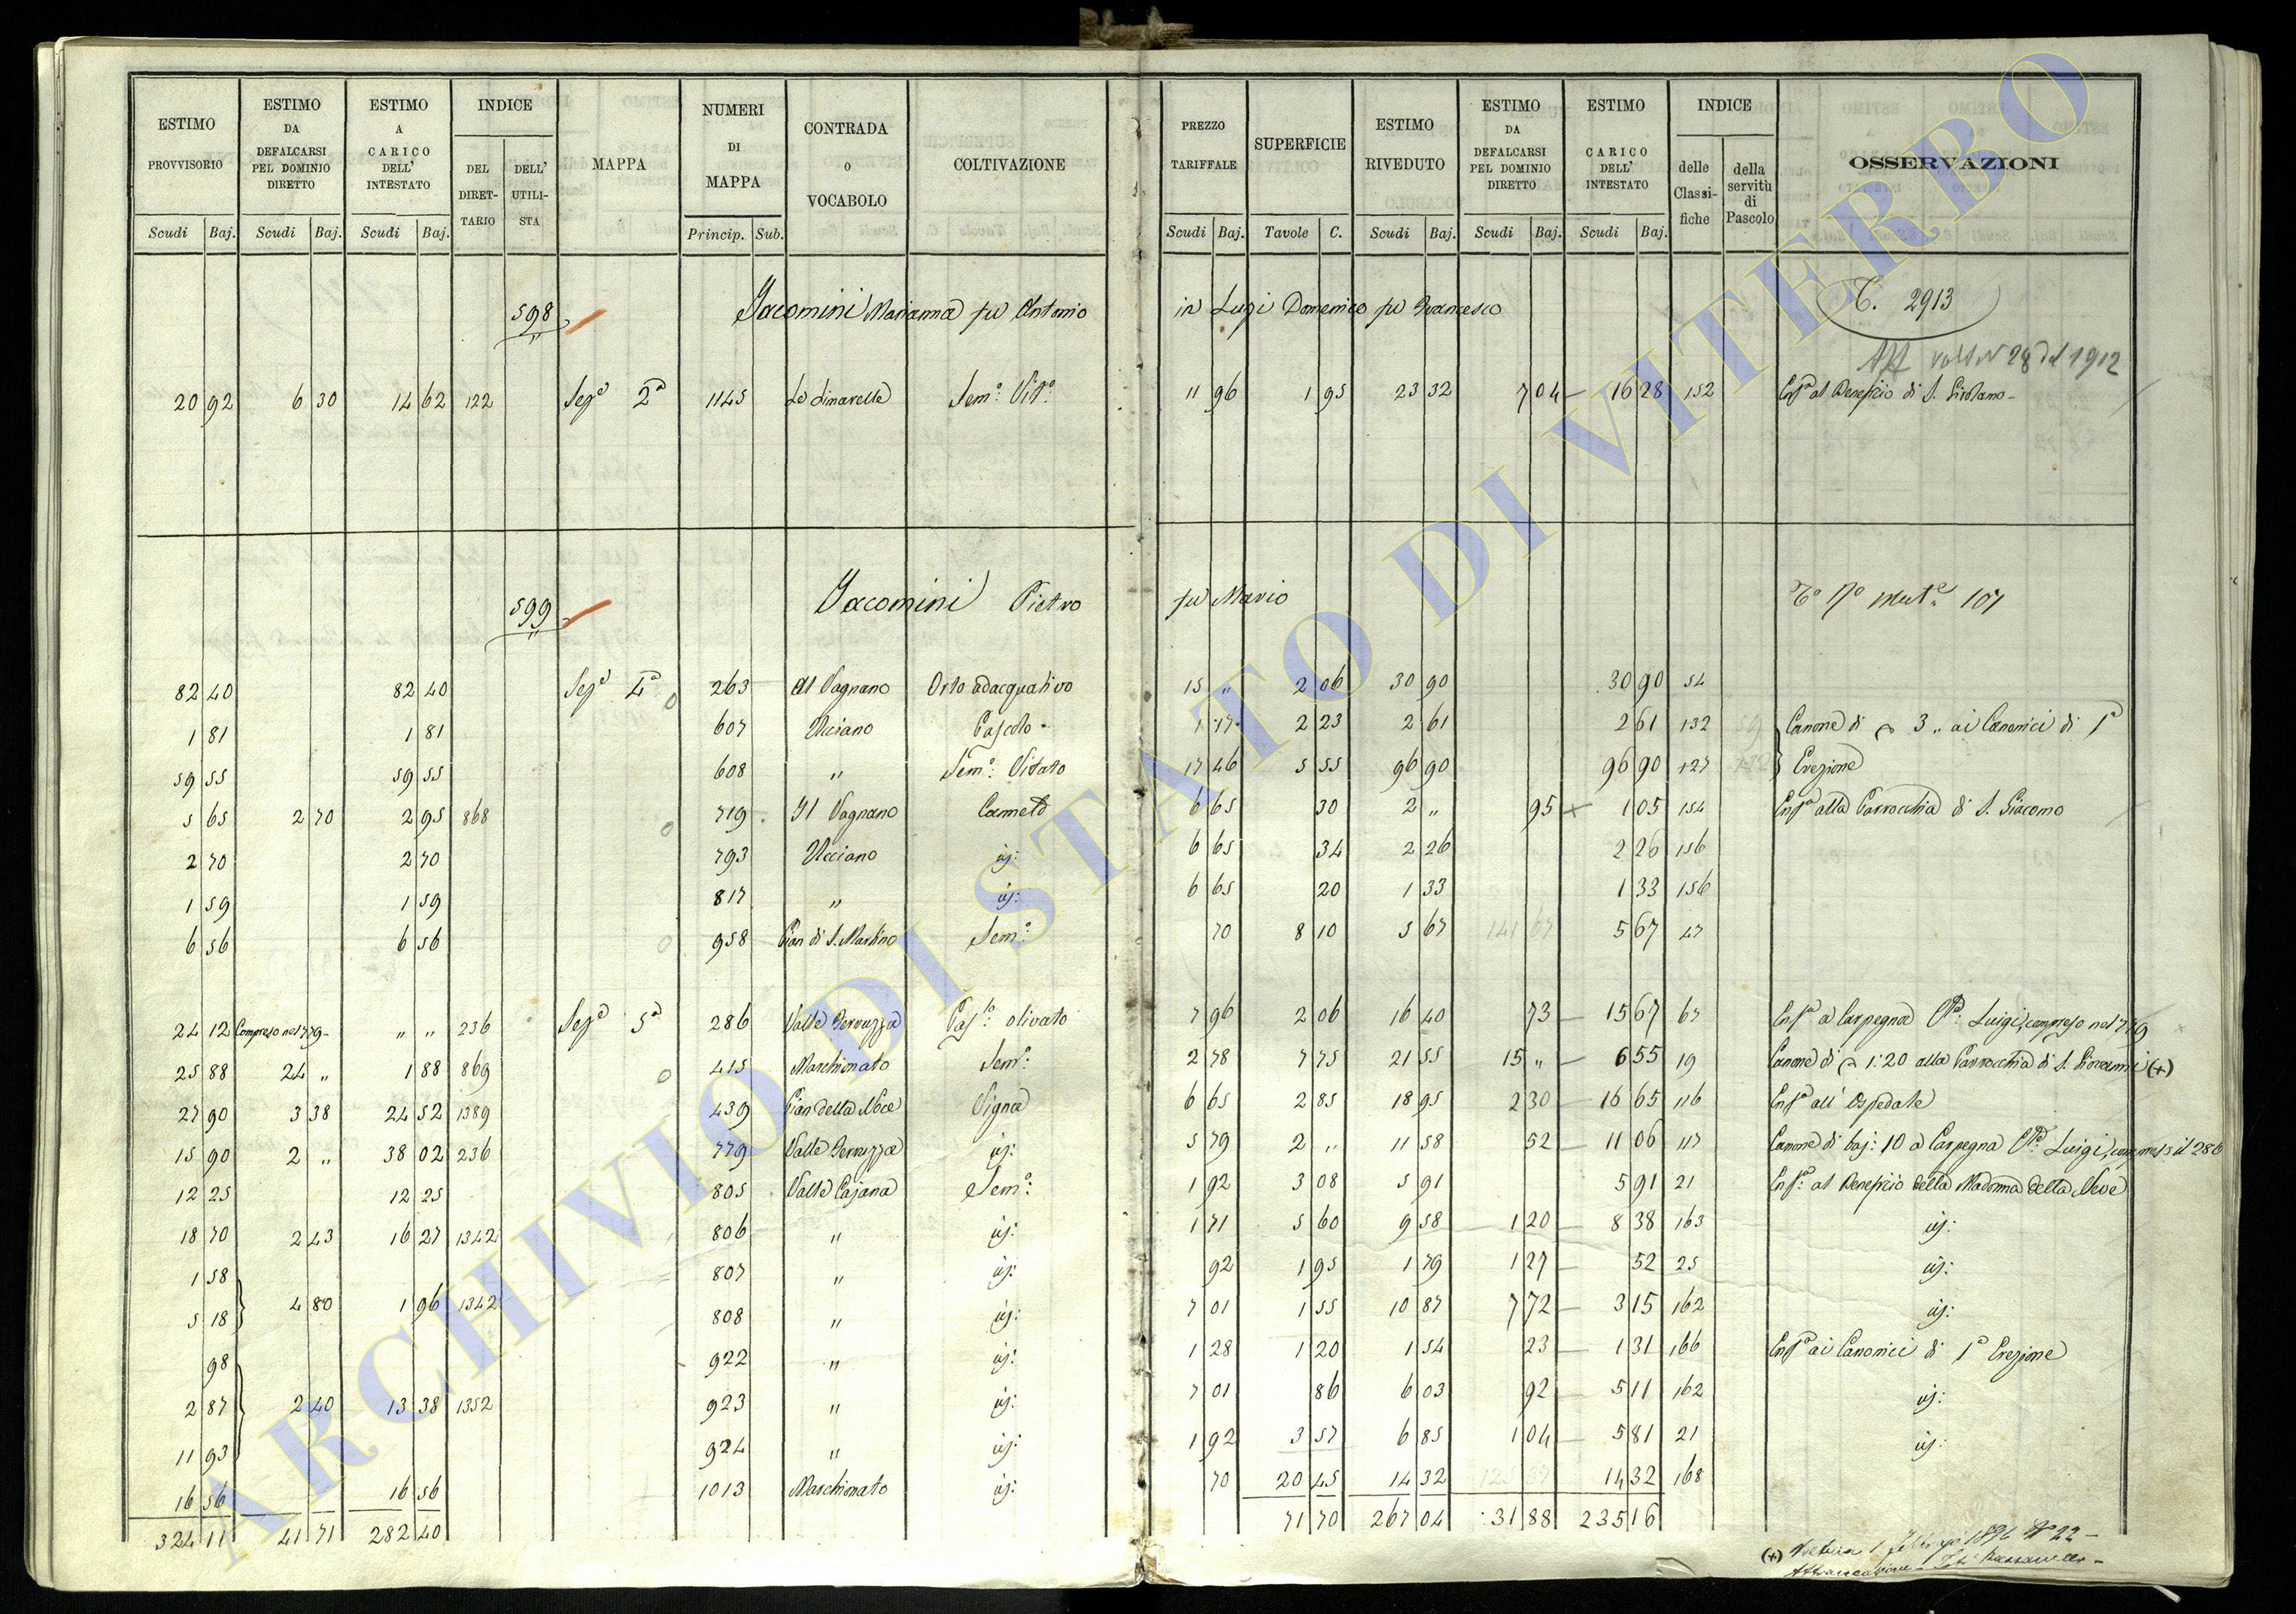 ESTIMO PROVVISORIO | ESTIMO DA DEFALCARSI PEL DOMINIO DIRETTO | ESTIMO A CARICO DELL' INTESTATO | INDICE | MAPPA | NUMERI DI MAPPA | CONTRADA o VOCABOLO | COLTIVAZIONE | PREZZO TARIFFALE | SUPERFICIE | ESTIMO RIVEDUTO | ESTIMO DA DEFALCARSI PEL DOMINIO DIRETTO | ESTIMO A CARICO DELL' INTESTATO | INDICE | OSSERVAZIONI
DEL DIRETTARIO | DELL' UTILISTA | delle Classifiche | della servitù di Pascolo
Scudi | Baj. | Scudi | Baj. | Scudi | Baj. | Princip. | Sub. | Scudi | Baj. | Tavole | C. | Scudi | Baj. | Scudi | Baj. | Scudi | Baj.
598 Iacomini Marianna fu Antonio in Luzi Domenico fu Francesco T. 2913
Aff Volt N 28 del 1912
20 92 | 6 30 | 14 62 | 122 | Sez.e 2a | 1145 | Le Limarelle | Sem.o Vit.o | 11 96 | 1 95 | 23 32 | 7 04 | 16 28 | 152 | Enf.a al Beneficio di S. Girolamo
599 Iacomini Pietro fu Mario 107
82 40 | 82 40 | Sez.e 4a | 263 | Al Vagnano | Orto adacquativo | 15 " | 2 06 | 30 90 | 30 90 | 54
1 81 | 1 81 | 607 | Ucciano | Pascolo | 1 17 | 2 23 | 2 61 | 2 61 | 132 | Canone di 3 " ai Canonici di 1a
59 55 | 59 55 | 608 | " | Sem.o Vitato | 17 46 | 5 55 | 96 90 | 96 90 | 127 | Erezione
5 65 | 2 70 | 2 95 | 868 | 719 | Il Vagnano | Canneto | 6 65 | 30 | 2 " | 95 | 1 05 | 154 | Enf.a alla Parrocchia di S. Giacomo
2 70 | 2 70 | 793 | Ucciano | id: | 6 65 | 34 | 2 26 | 2 26 | 156
1 59 | 1 59 | 817 | " | id: | 6 65 | 20 | 1 33 | 1 33 | 156
6 56 | 6 56 | 958 | Pian di S. Martino | Sem.o | 70 | 8 10 | 5 67 | 141 67 | 5 67 | 47
24 12 | Compreso nel 779 | " " | 236 | Sez.e 5a | 286 | Valle Gervuzza | Pas.lo olivato | 7 96 | 2 06 | 16 40 | 73 | 15 67 | 67 | Enf.a a Carpegna Luigi, compreso nel 779
25 88 | 24 " | 1 88 | 869 | 415 | Marchionato | Sem.o | 2 78 | 7 75 | 21 55 | 15 " | 6 55 | 19 | Canone di 1:20 alla Parrocchia di S. Giovanni (+)
27 90 | 3 38 | 24 52 | 1389 | 439 | Pian della Noce | Vigna | 6 65 | 2 85 | 18 95 | 2 30 | 16 65 | 116 | Enf.a all' Ospedale
15 90 | 2 " | 38 02 | 236 | 779 | Valle Gervuzza | id: | 5 79 | 2 " | 11 58 | 52 | 11 06 | 117 | Canone di baj: 10 a Carpegna Luigi, compreso il 286
12 25 | 12 25 | 805 | Valle Cajana | Sem.o | 1 92 | 3 08 | 5 91 | 5 91 | 21 | Enf.a al Beneficio della Madonna della Neve
18 70 | 2 43 | 16 27 | 1342 | 806 | " | id: | 1 71 | 5 60 | 9 58 | 1 20 | 8 38 | 163 | id:
1 58 | 807 | " | id: | 92 | 1 95 | 1 79 | 1 27 | 52 | 25 | id:
5 18 | 4 80 | 1 96 | 1342 | 808 | " | id: | 7 01 | 1 55 | 10 87 | 7 72 | 3 15 | 162 | id:
98 | 922 | " | id: | 1 28 | 1 20 | 1 54 | 23 | 1 31 | 166 | Enf.a ai Canonici di 1a Erezione
2 87 | 2 40 | 13 38 | 1352 | 923 | " | id: | 7 01 | 86 | 6 03 | 92 | 5 11 | 162 | id:
11 93 | 924 | " | id: | 1 92 | 3 57 | 6 85 | 1 04 | 5 81 | 21 | id:
16 56 | 16 56 | 1013 | Marchionato | id: | 70 | 20 45 | 14 32 | 14 32 | 168
324 11 | 41 71 | 282 40 | 71 70 | 267 04 | 31 88 | 235 16
(+) Voltura 1 Febbraio 1896 N° 22
Affrancazione
ARCHIVIO DI STATO DI VITERBO